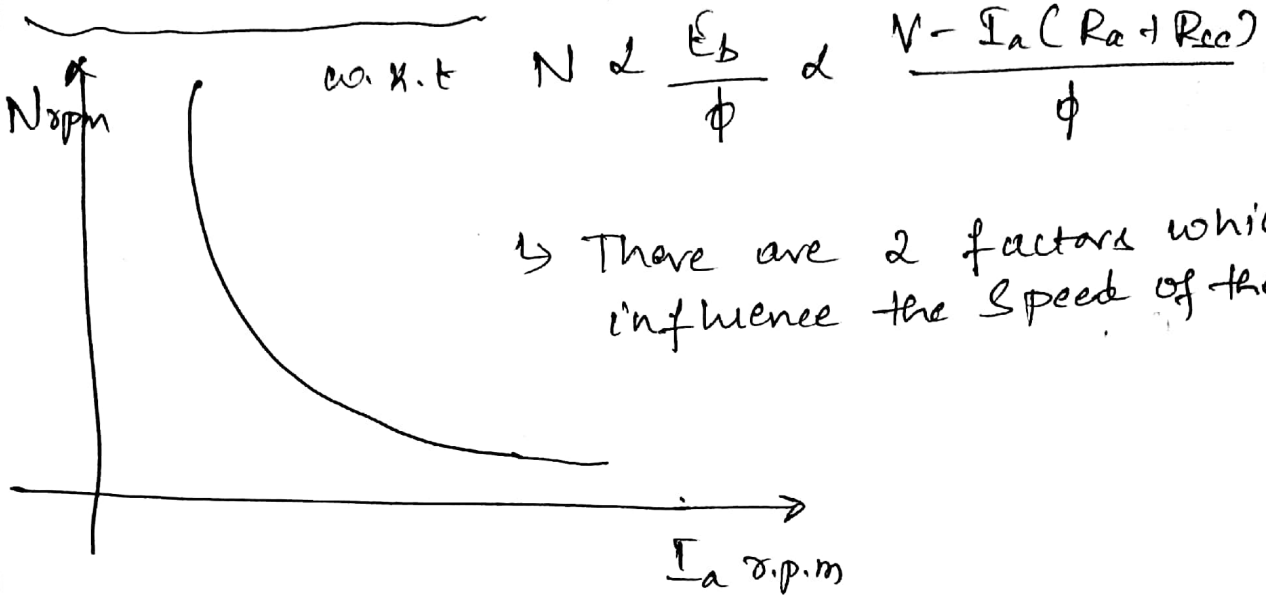 w.k.t N α Eb/ϕ α V - Ia (Ra + Rsc)/ϕ
N rpm
↳ There are 2 factors whic
influence the Speed of the
Ia r.p.m